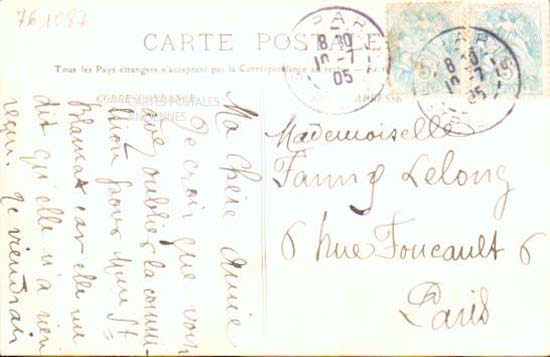 761087
CARTE POSTALE
Tous les Pays étrangers n'acceptent pas la Correspondance au recto
CORRESPONDANCE
ADRESSE
CARTES POSTALES
ANCIENNES
PARIS
8 10
10-7
05
PARIS
8 10
10-7
05
5
5
Mademoiselle
Fanny Lelong
6 Rue Foucault 6
Paris
Ma chère Amie
Je crois que vous
avez oublié la commi-
ssion pour Mme St-
Blancat car elle me
dit qu'elle n'a rien
reçu. Je viendrai